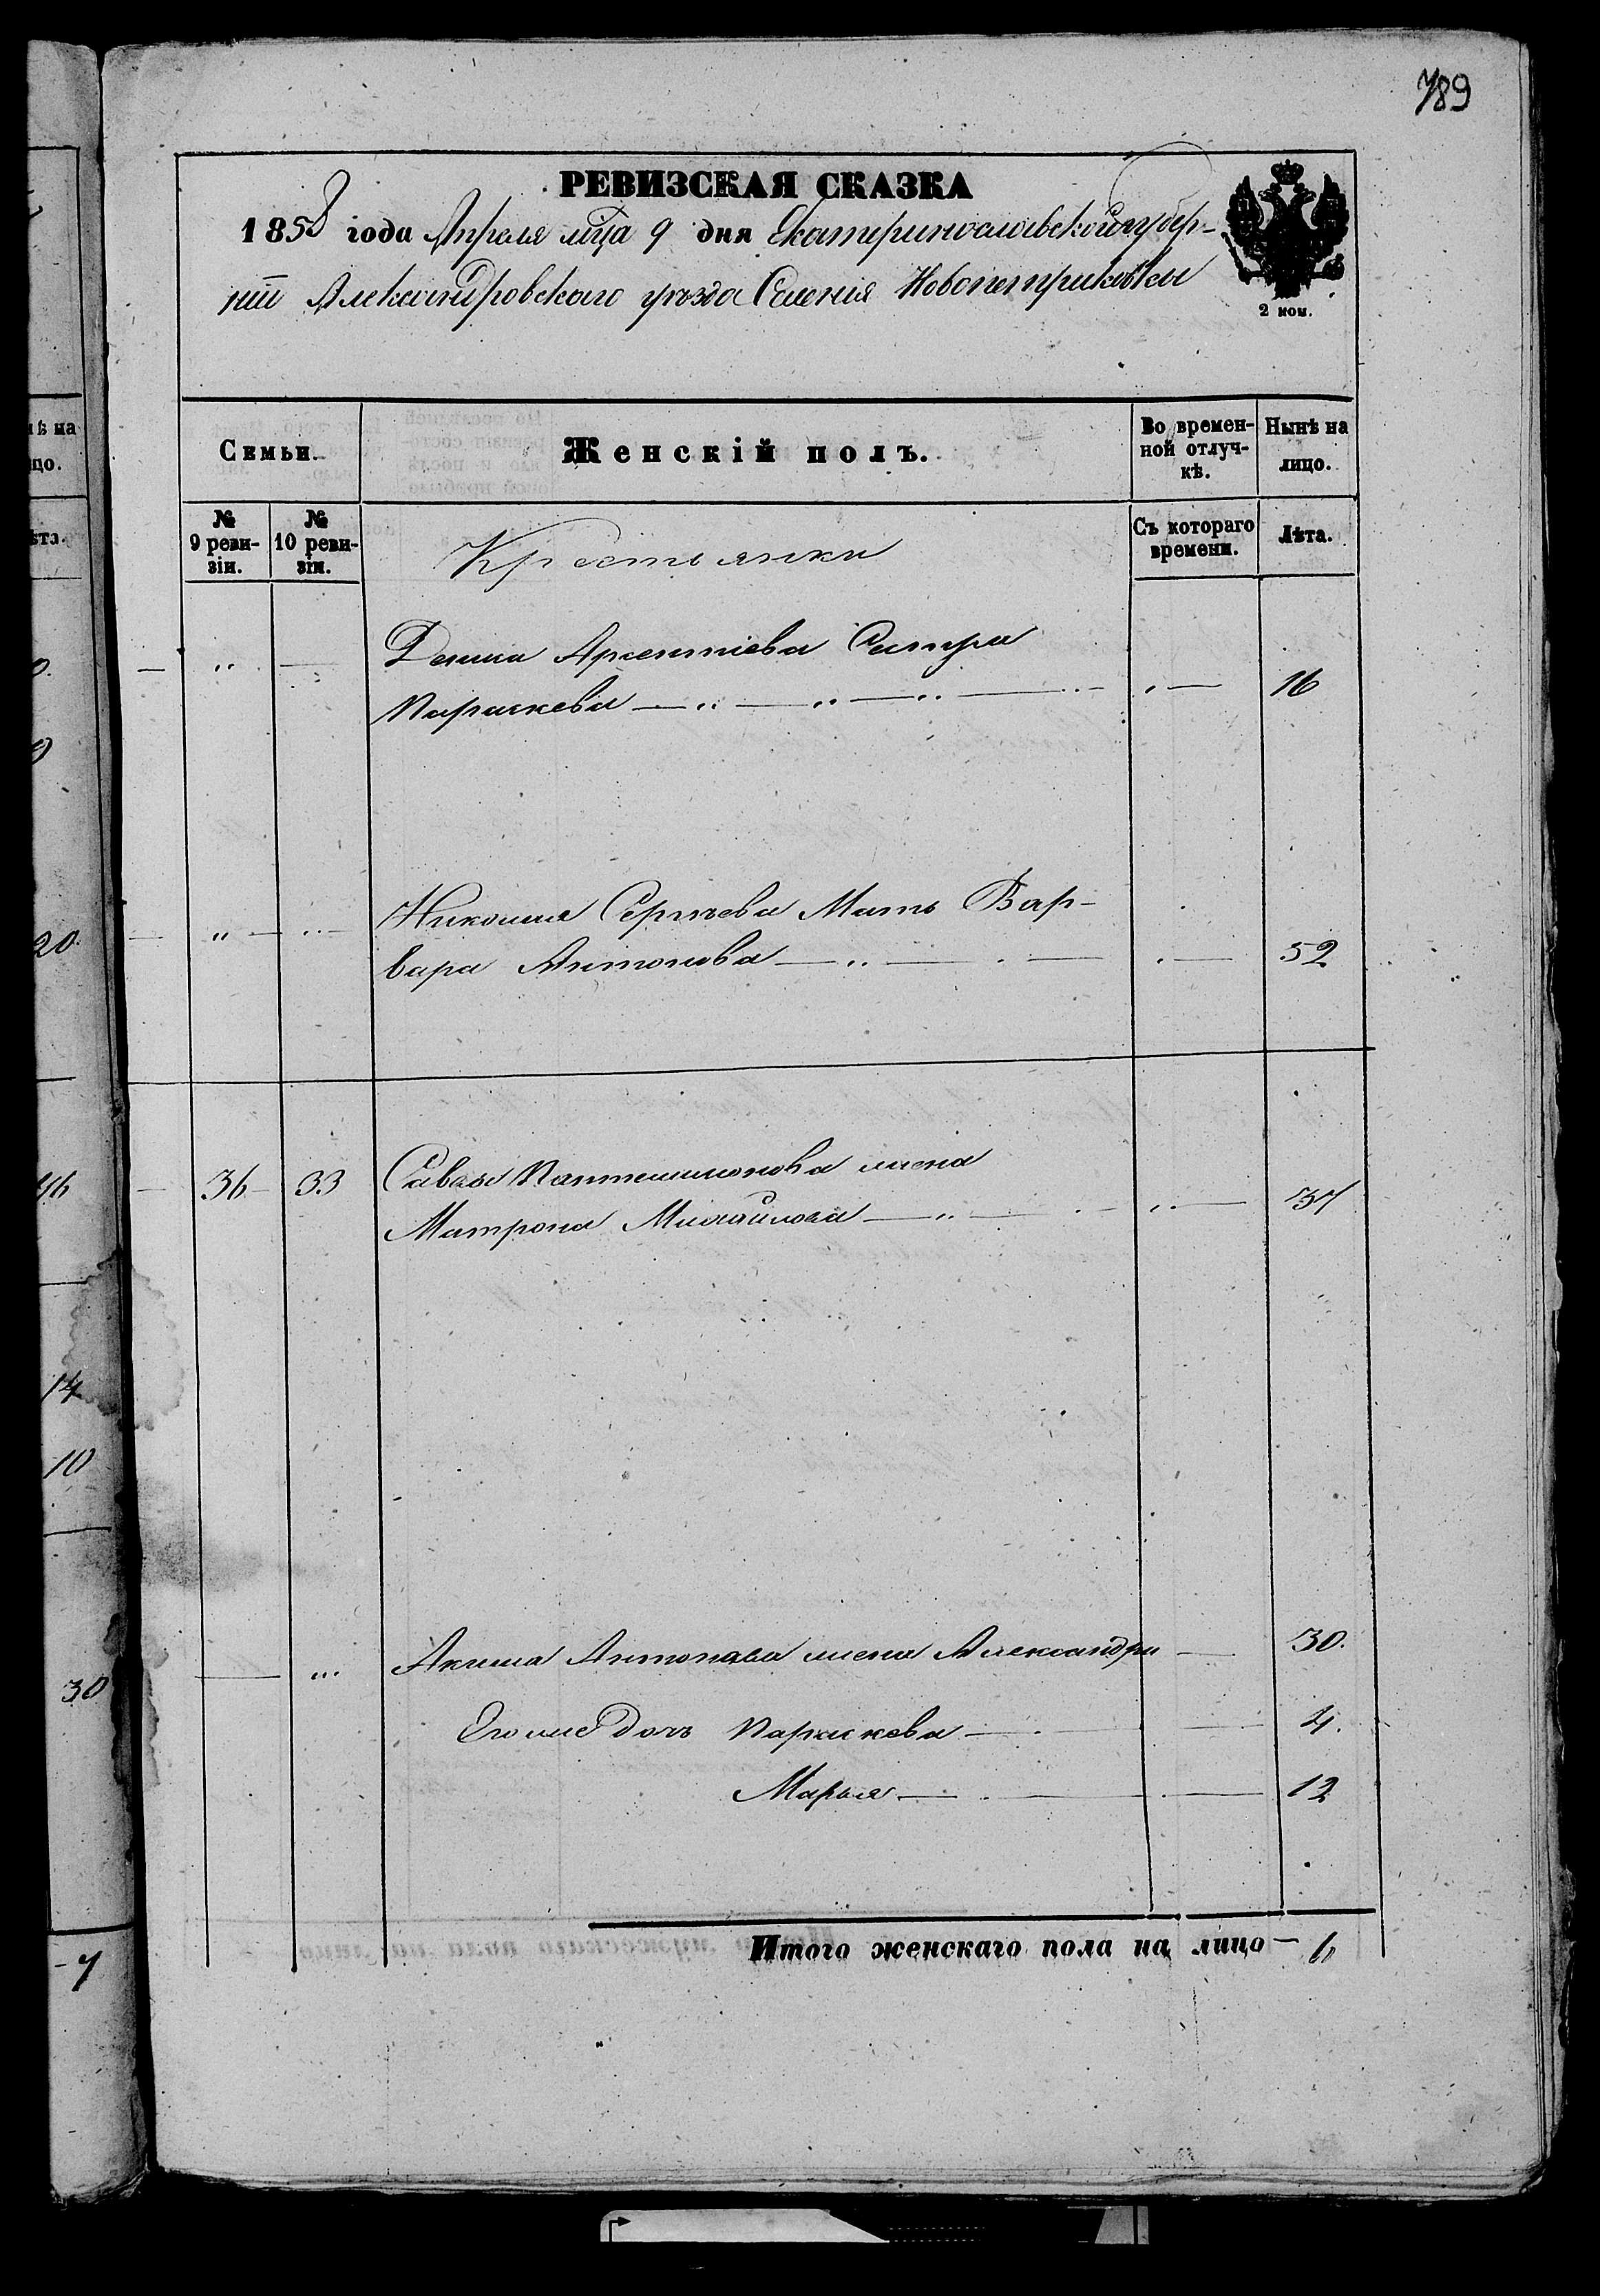 789
РЕВИЗСКАЯ СКАЗКА
1858 года Апреля мца 9 дня Екатеринославской губер-
нiи Александровского уѣзда Селенiя Новопетриковки
2 коп.
Семьи.
Женскiй полъ.
Во времен-
ной отлуч-
кѣ.
Нынѣ на
лицо.
№
9 реви-
зiи.
№
10 реви-
зiи.
Крестьянки
Съ котораго
времени.
Лѣта.
Арсентiева Сестра
Параскева 16
Николая Сергѣева Мать Вар-
вара Антонова 52
36 33 Савы Пантелимонова жена
Матрона Михайлова 37
Акима Антонова жена Александра 30.
Его же дочь Параскева 4.
Марья 12
Итого женскаго пола на лицо 6
ѣ на
цо.
ѣта.
0.
9
20
46
14
10
30
7